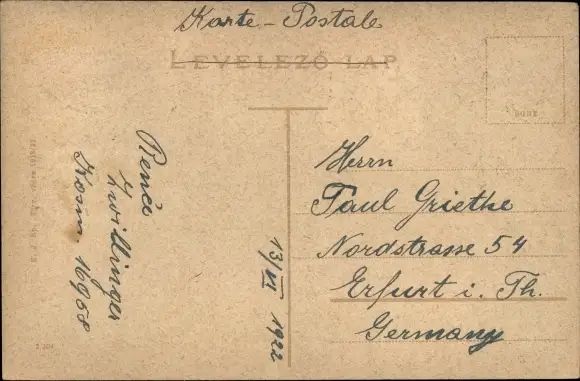 Karte - Postale
LEVELEZŐ LAP
Renée
Zwillinger
Kosm. 16958
13/VI 1922
Herrn
Paul Grietke
Nordstrasse 54
Erfurt i. Th.
Germany